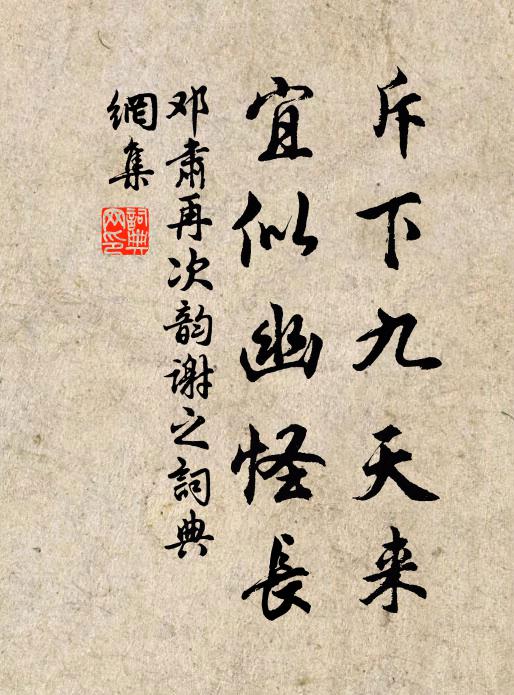 斥下九天来
宜似幽怪長
邓肅再次韵谢之詞典
網集
詞典网印